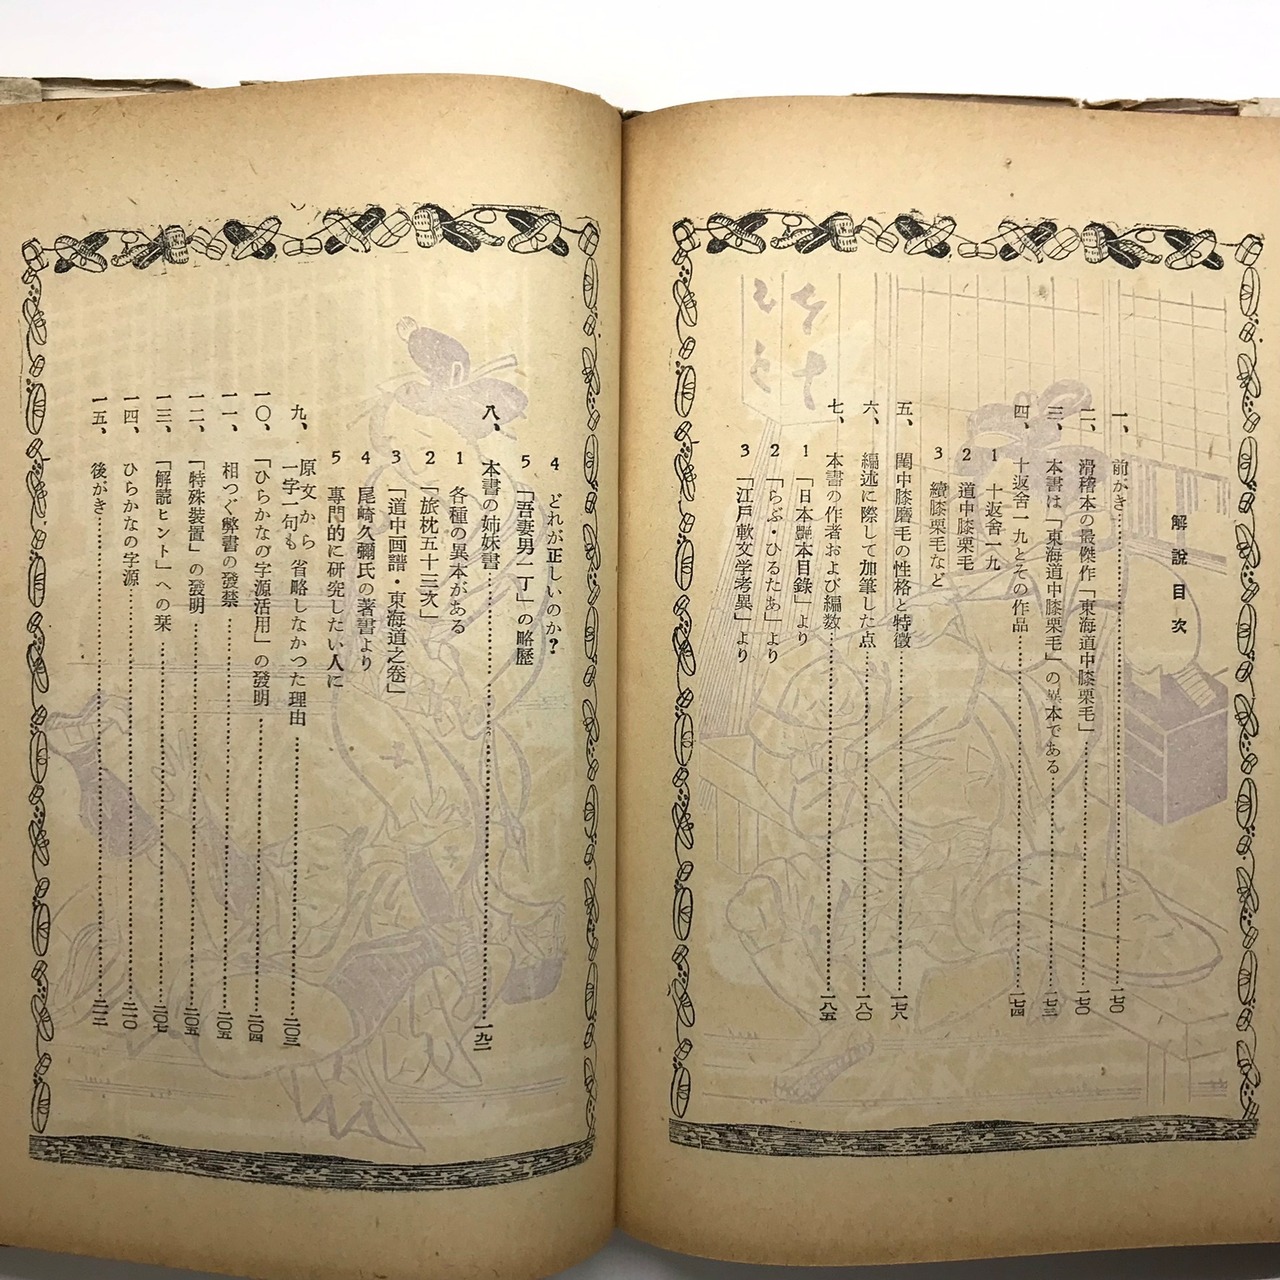 解說目次
一、前がき……一七〇
二、滑稽本の最傑作「東海道中膝栗毛」……一七〇
三、本書は「東海道中膝栗毛」の異本である……一七三
四、十返舍一九とその作品……一七四
1 十返舍一九
2 道中膝栗毛
3 續膝栗毛など
五、閨中膝磨毛の性格と特徴……一七八
六、編述に際して加筆した点……一八〇
七、本書の作者および編数……一八五
1「日本艷本目錄」より
2「らぶ・ひるたあ」より
3「江戸軟文学考異」より
4 どれが正しいのか?
5「吾妻男一丁」の略歷
八、本書の姉妹書……一九二
1 各種の異本がある
2「旅枕五十三次」
3「道中画譜・東海道之卷」
4 尾崎久彌氏の著書より
5 專門的に研究したい人に
九、原文から一字一句も省略しなかつた理由……二〇三
一〇、「ひらかなの字源活用」の發明……二〇四
一一、相つぐ弊書の發禁……二〇五
一二、「特殊裝置」の發明……二〇五
一三、「解読ヒント」への栞……二〇七
一四、ひらかなの字源……二一〇
一五、後がき……二一二